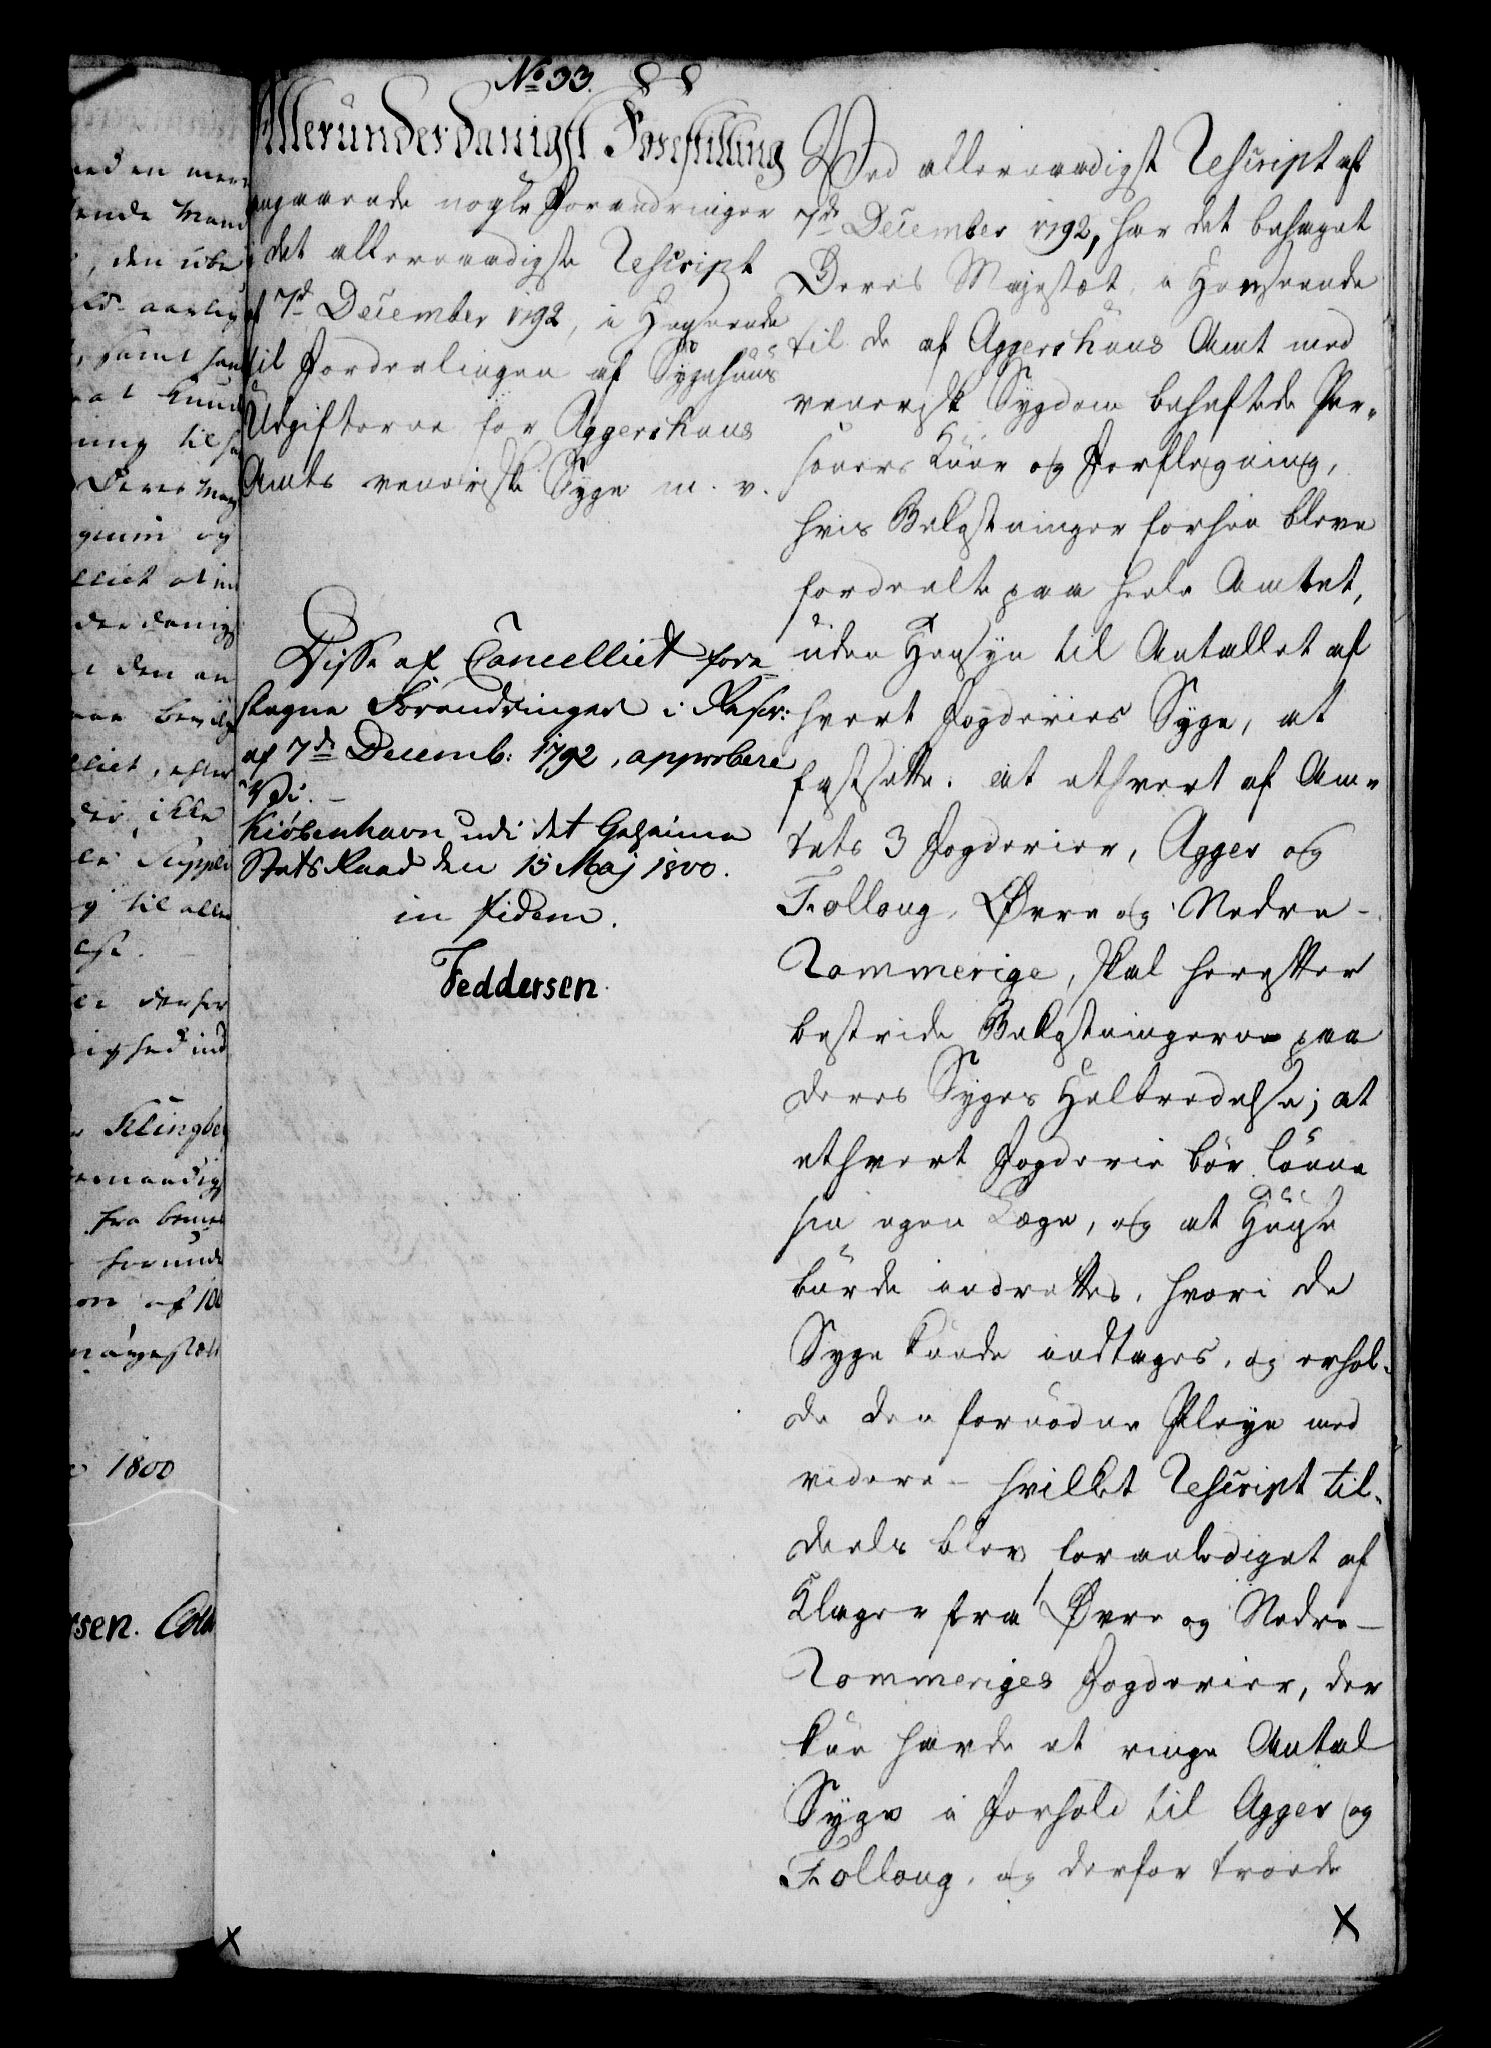 No 33.
Allerunderdanigst Forestilling
angaaende nogle Forandringer
i det allernaadigste Rescript
af 7de December 1792, i Henseende
til Fordeelingen af Sygehuus
Udgifterne for Aggershuus
Amts veneriske Syge m. v.
Disse af Cancelliet fore-
slagne Forandringer i Rescr:
af 7de Decemb: 1792, approbere
Vi. -
Kiöbenhavn udi det Geheime
StatsRaad den 15 Maj 1800.
in fidem.
Feddersen.
Ved allernaadigst Rescript af
7de December 1792, har det behaget
Deres Majestæt, i Henseende
til de af Aggershuus Amt med
venerisk Sygdom behæftede Per-
soners Kuur og Forflegning,
hvis Bekostninger forhen bleve
fordeelte paa heele Amtet,
uden Hensyn til Antallet af
hvert Fogderies Syge, at
fastsætte: at ethvert af Am-
tets 3 Fogderier, Agger og
Follaug, Øvre og Nedre-
Rommerige, skal herefter
bestride Bekostningerne paa
deres Syges Helbredelse; at
ethvert Fogderie bör lönne
sin egen Læge, og at Huuse
burde indrettes, hvori de
Syge kunde indtages, og erhol-
de den fornödne Pleye med
videre - hvilket Rescript til-
deels blev foranlediget af
Klager fra Øvre og Nedre-
Rommeriges Fogderier, der
kun havde et ringe Antal
Syge i Forhold til Agger og
Follaug, og derfor troede